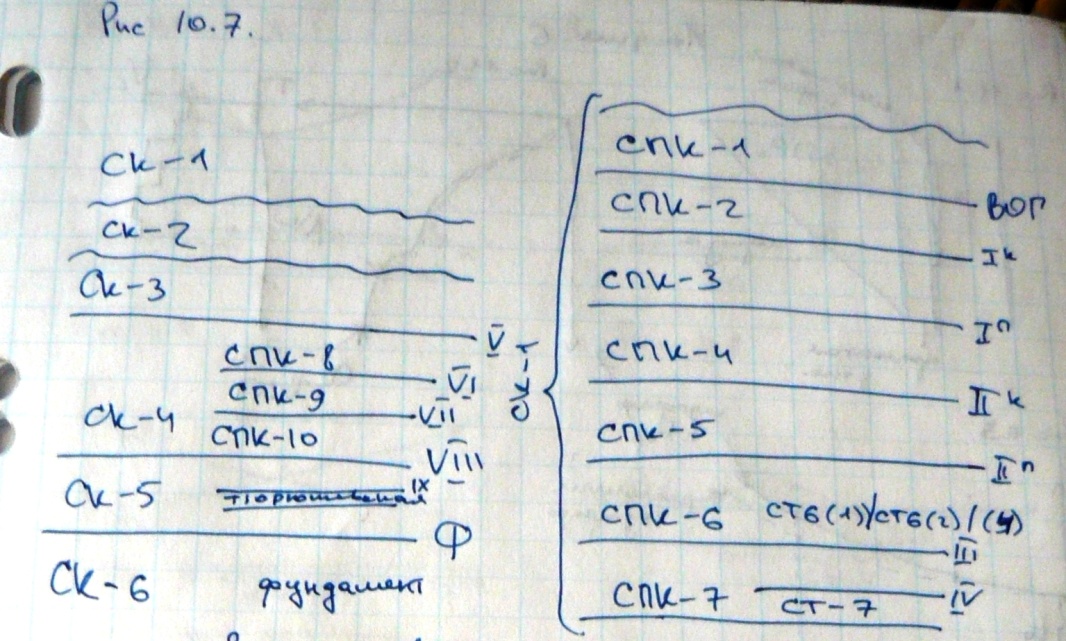 Рис 10.7.
СК-1
СК-2
СК-3
V
СПК-8
VI
СПК-9
VII
СК-4
СПК-10
VIII
СК-5
IX
Ф
СК-6 фундамент
СК-1
СПК-1
СПК-2
ВОГ
Iк
СПК-3
Iп
СПК-4
IIк
СПК-5
IIп
СПК-6 СТ6(1)/СТ6(2)/(4)
III
СПК-7
СТ-7
IV